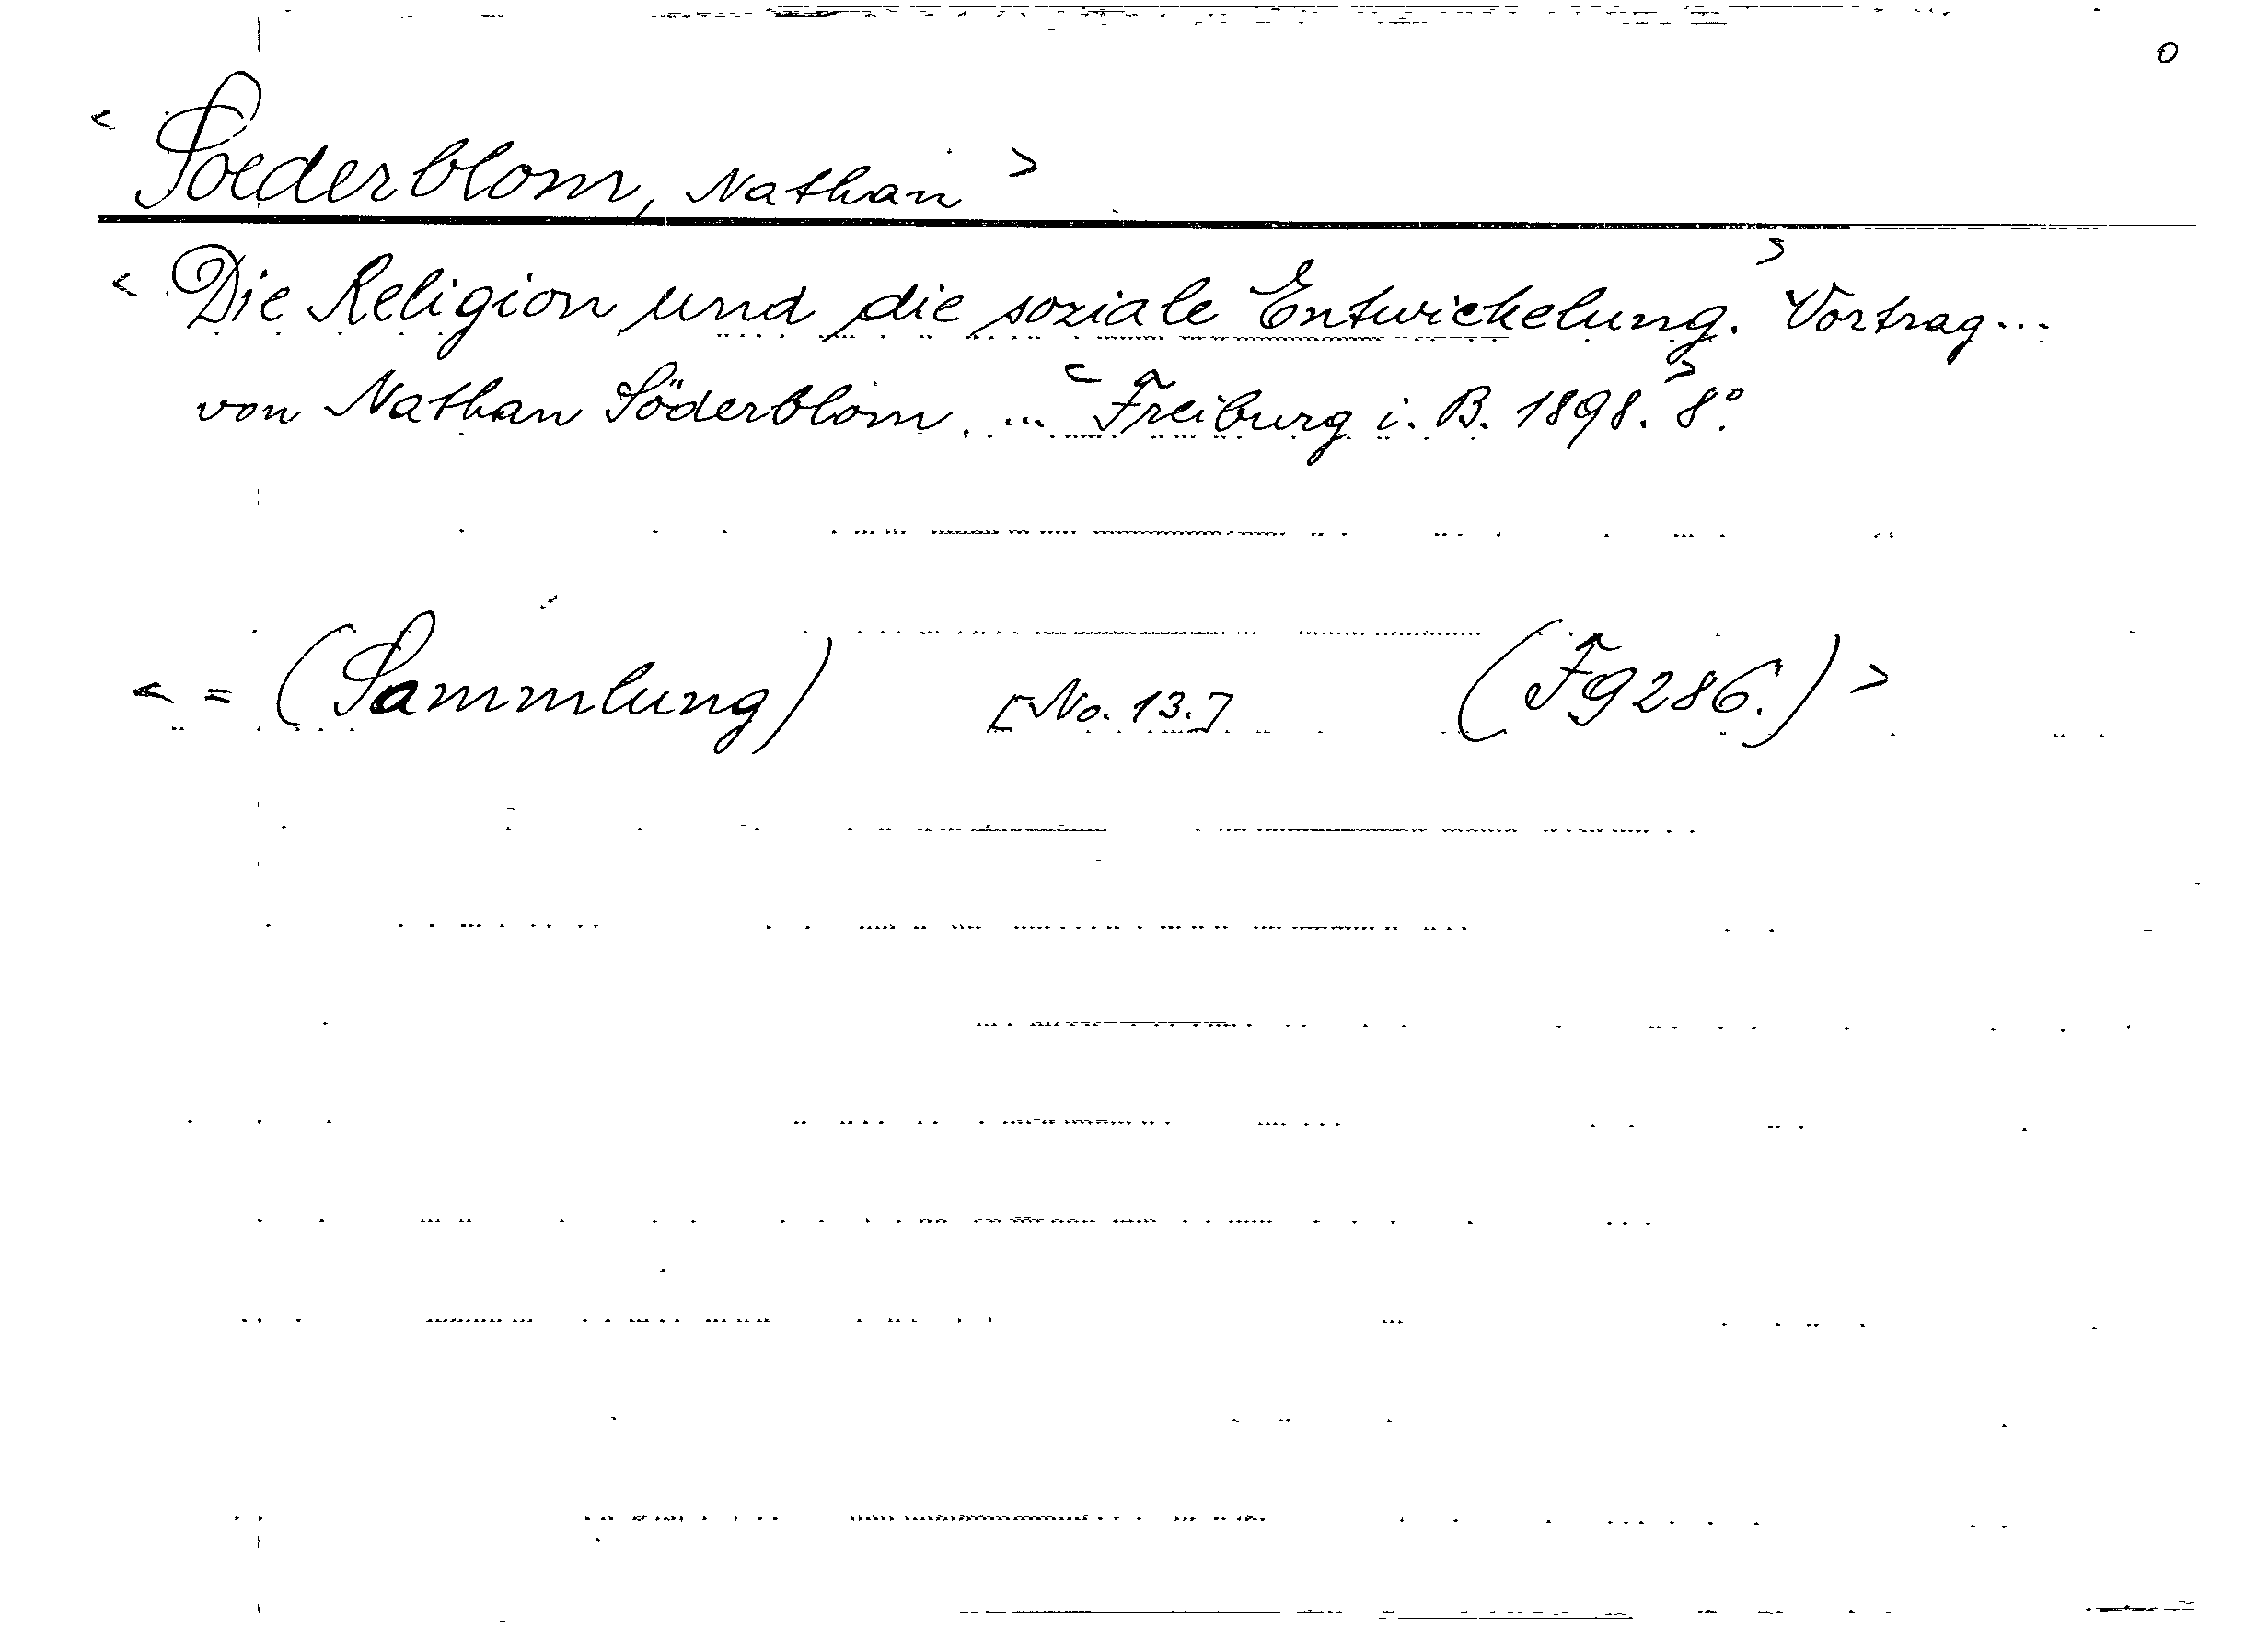 o
< Soederblom, Nathan >
< Die Religion und die soziale Entwickelung. > Vortrag...
von Nathan Söderblom. ... < Freiburg i. B. 1898. > 8°.
< = (Sammlung) [No. 13.] (F9286.) >